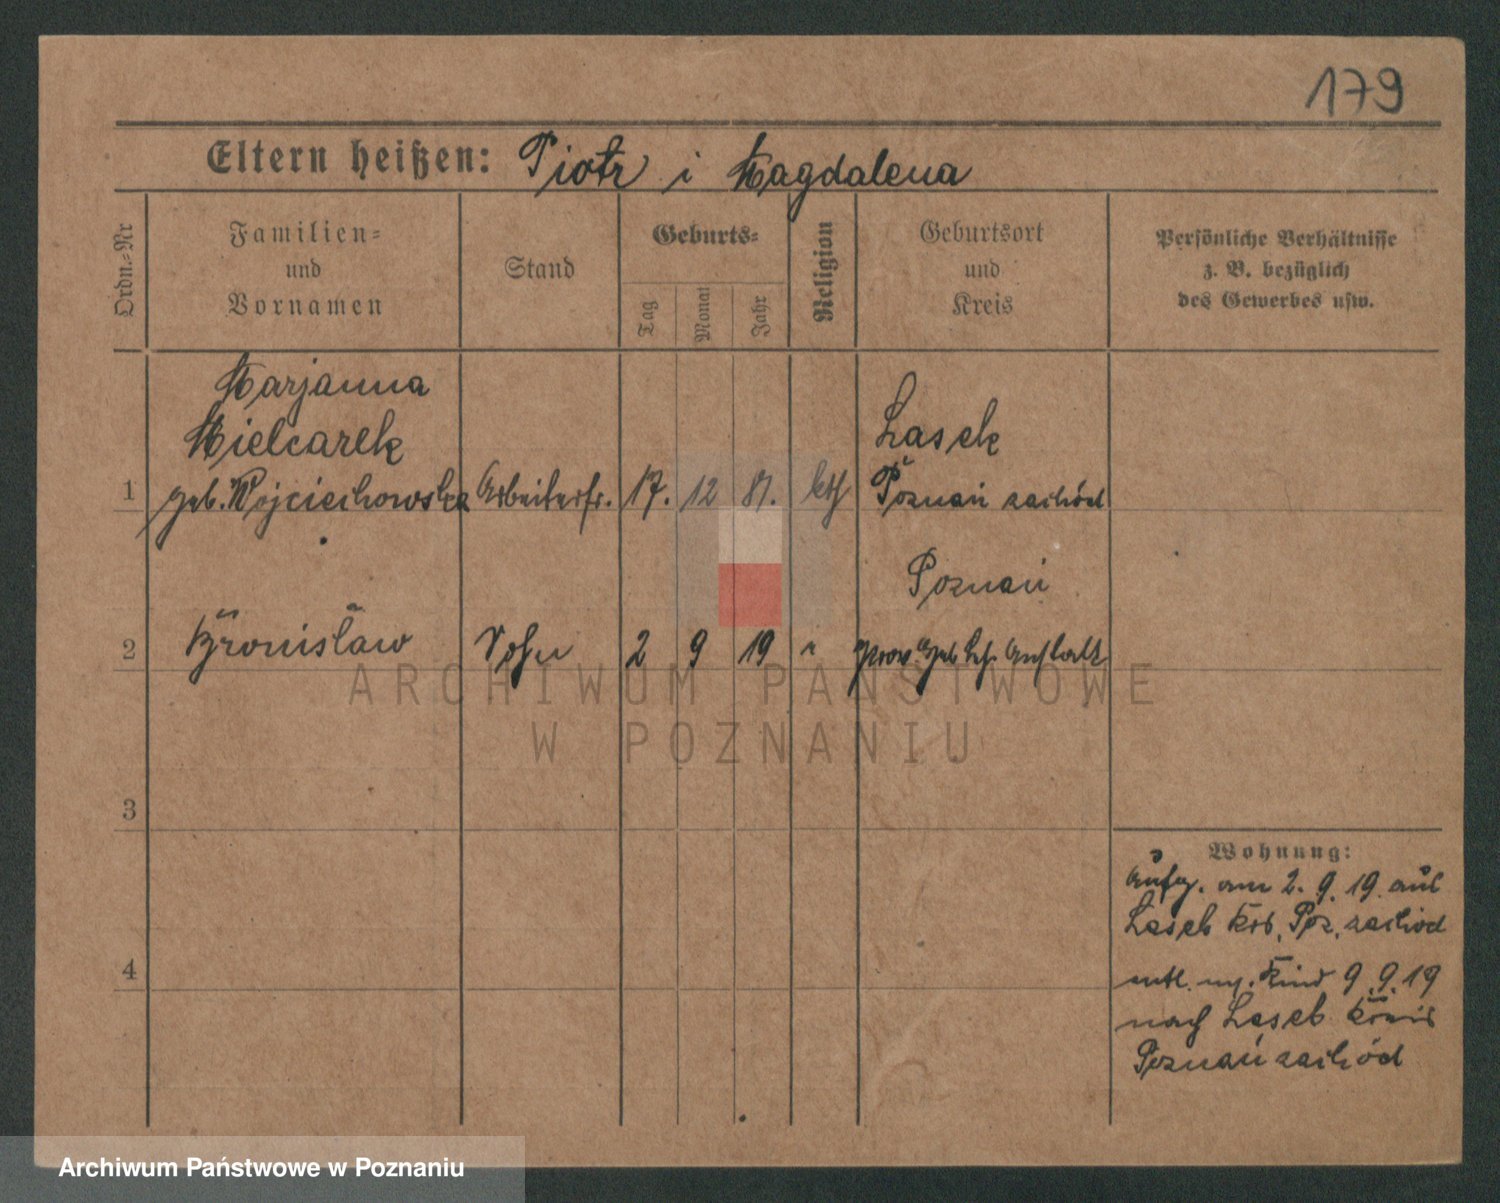 179
Eltern heißen: Piotr i Magdalena
Ordn.-Nr
Familien-
und
Vornamen
Stand
Geburts-
Tag
Monat
Jahr
Religion
Geburtsort
und
Kreis
Persönliche Verhältnisse
z. B. bezüglich
des Gewerbes usw.
Marjanna
Mielcarek
1 geb. Wojciechowska Arbeiterfr. 17. 12 81. kth
Lasek
Poznań zachód
Poznań
2 Bronisław Sohn 2 9 19 " prov. Geb. Anstalt
3
4
Wohnung:
Aufg. am 2. 9. 19. aus
Lasek Krs. Poz. zachód
entl. m. Kind 9.9.19
nach Lasek Kreis
Poznań zachód
ARCHIWUM PAŃSTWOWE
W POZNANIU
Archiwum Państwowe w Poznaniu